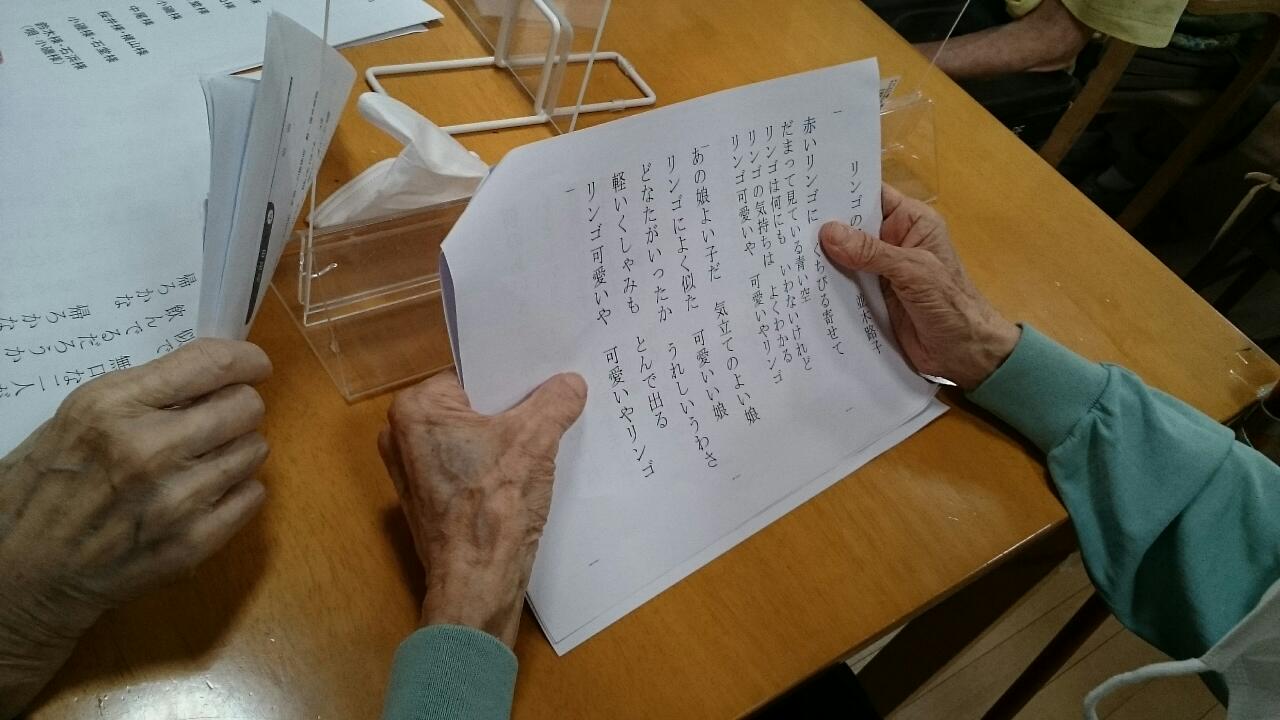 リンゴの 並木路子
一
赤いリンゴに くちびる寄せて
だまって見ている青い空
リンゴは何にも いわないけれど
リンゴの気持ちは よくわかる
リンゴ可愛いや 可愛いやリンゴ
あの娘よい子だ 気立てのよい娘
リンゴによく似た 可愛いい娘
どなたがいったか うれしいうわさ
軽いくしゃみも とんで出る
リンゴ可愛いや 可愛いやリンゴ
無口な二人が
飲んでるだろうか
帰ろかな 帰ろかな
中尾様
小磯様・石堂様
桜井様・横山様
鈴木様・石浜様